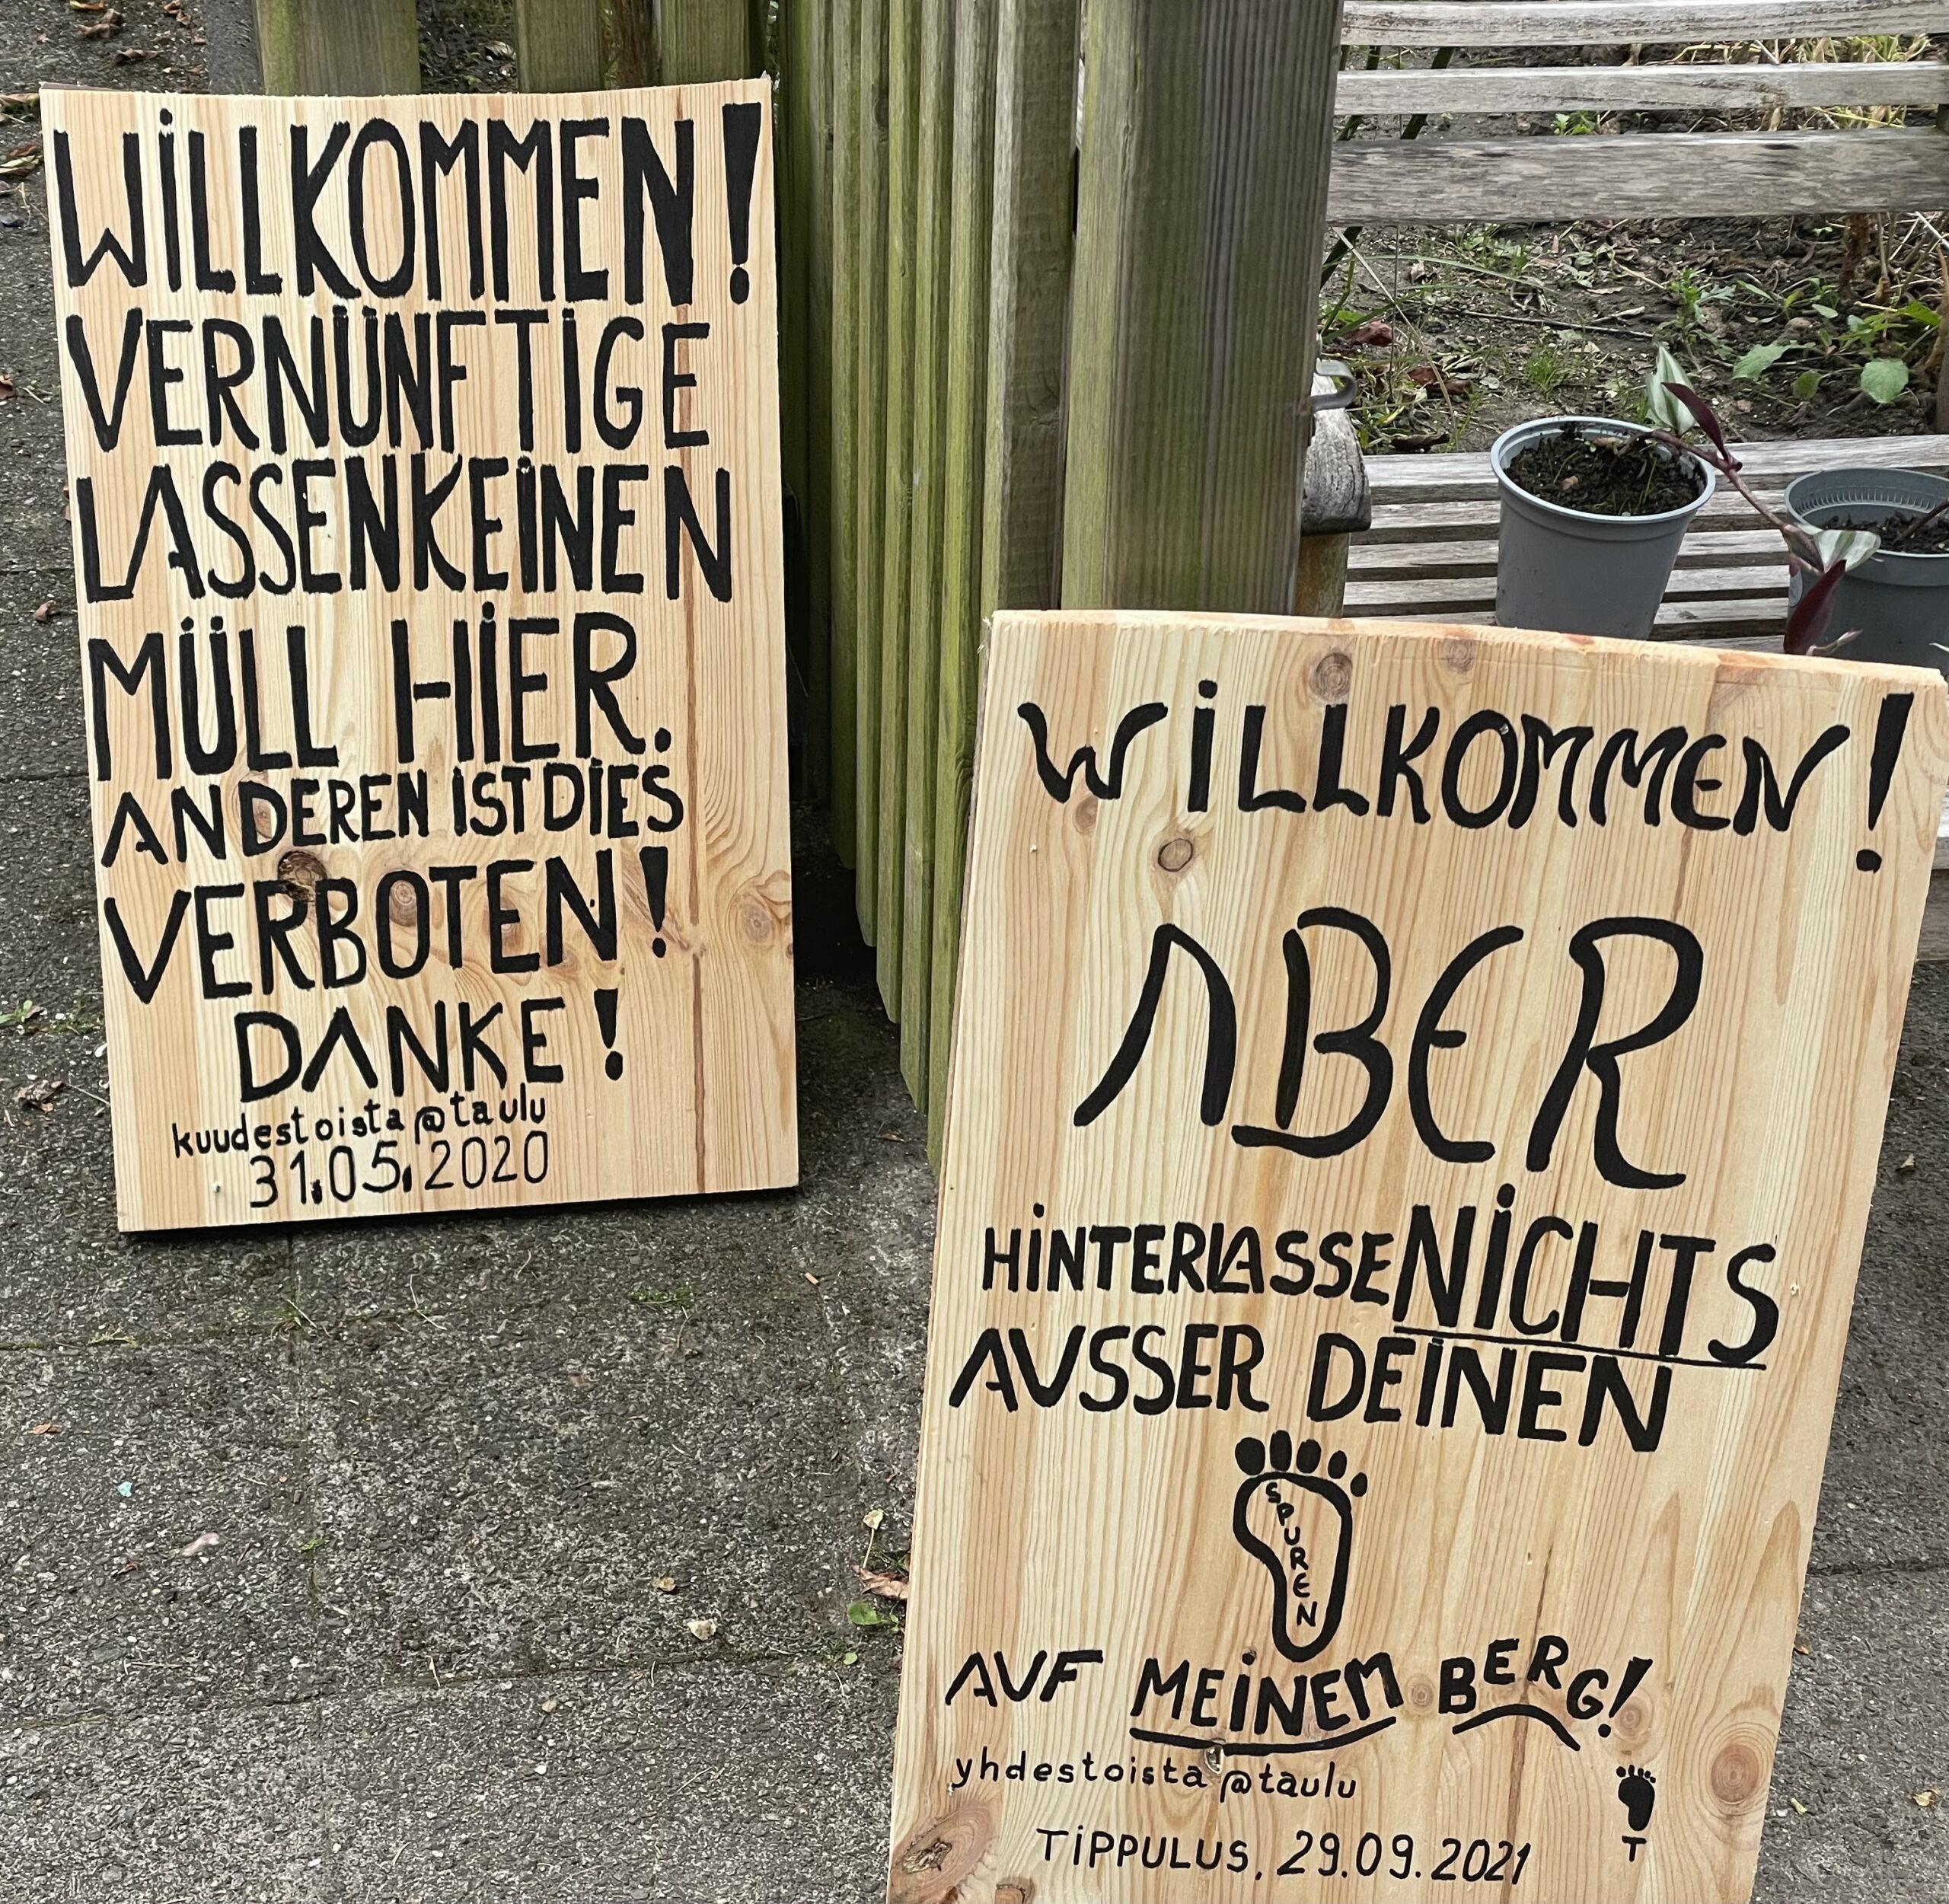 WiLLKOMMEN!
VERNÜNFTiGE
LASSEN KEiNEN
MÜLL HiER.
ANDEREN iST DiES
VERBOTEN!
DANKE!
kuudestoista@taulu
31.05.2020
WiLLKOMMEN!
ABER
HiNTERLASSE NiCHTS
AUSSER DEiNEN
SPUREN
AUF MEiNEM BERG!
yhdestoista@taulu
TiPPULUS, 29.09.2021
T